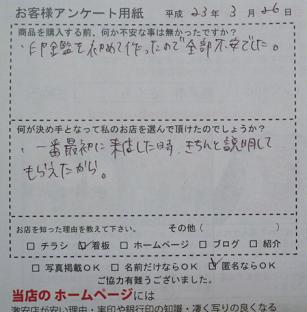 お客様アンケート用紙 平成 23年 3月 26日
商品を購入する前、何か不安な事は無かったですか?
・印鑑を初めて作ったので全部不安でした。
何が決め手となって私のお店を選んで頂けたのでしょうか?
・一番最初に来店した時、きちんと説明して
もらえたから。
お店を知った理由を教えて下さい。 その他( )
□ チラシ ☑ 看板 □ ホームページ □ ブログ □ 紹介
□ 写真掲載OK □ 名前だけならOK ☑ 匿名ならOK
ご協力有難うございました。
当店の ホームページには
激安店が安い理由・実印や銀行印の知識・凄く写りの良くなる